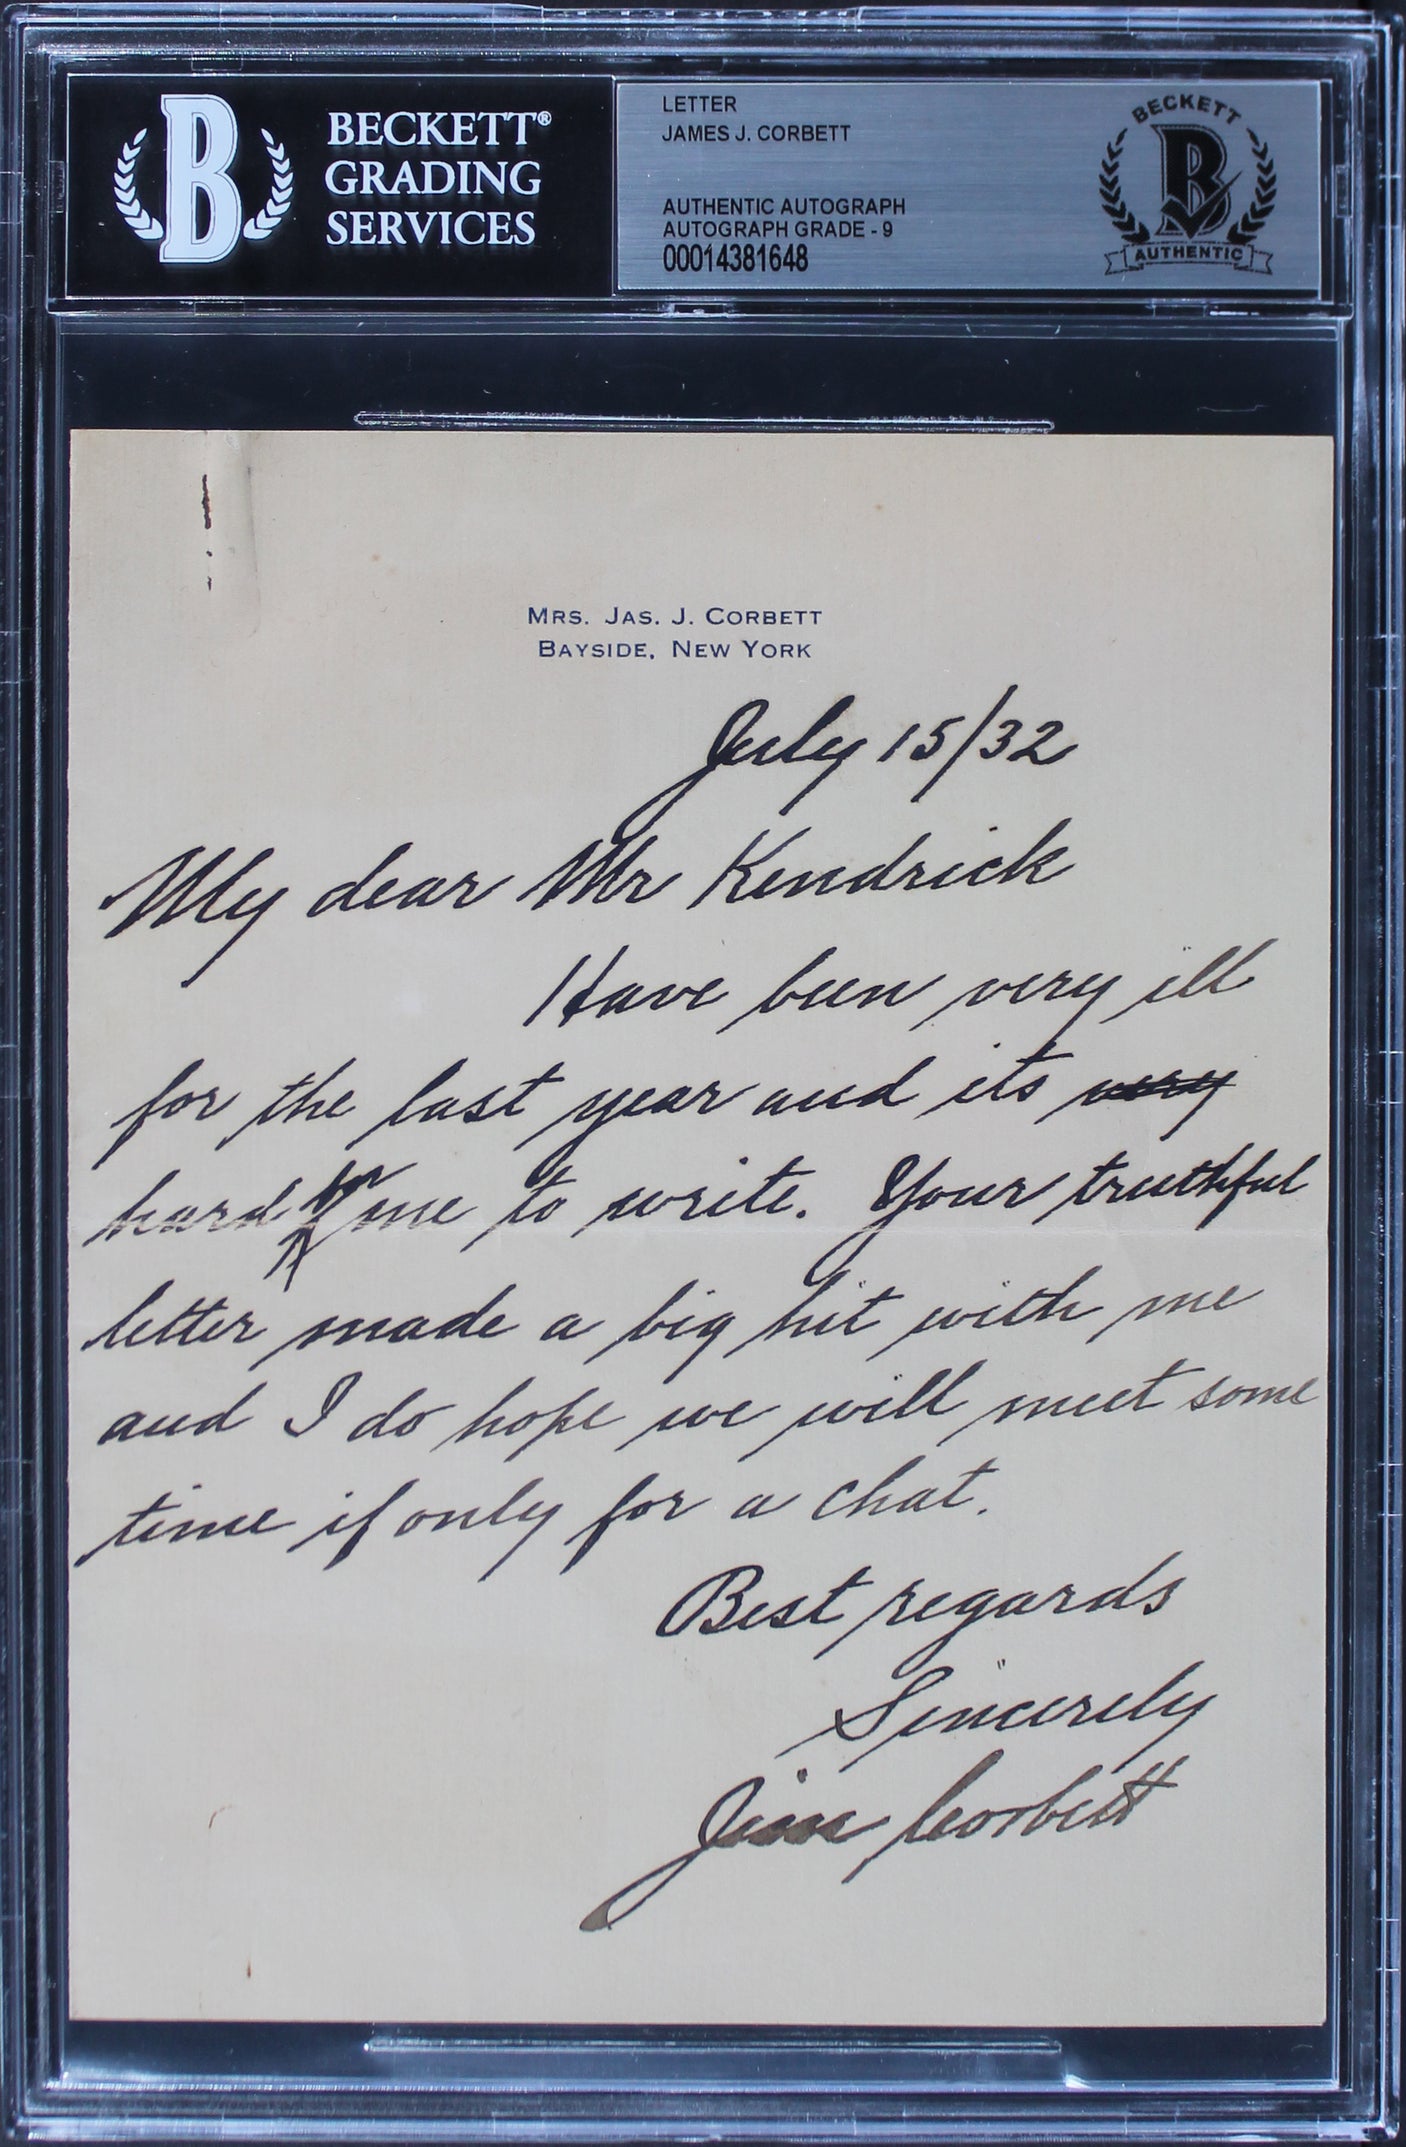 BECKETT®
GRADING
SERVICES
LETTER
JAMES J. CORBETT
AUTHENTIC AUTOGRAPH
AUTOGRAPH GRADE - 9
00014381648
BECKETT
B
AUTHENTIC
B
MRS. JAS. J. CORBETT
BAYSIDE, NEW YORK
July 15/32
My dear Mr Kendrick
Have been very ill
for the last year and its very
hard for me to write. Your truthful
letter made a big hit with me
and I do hope we will meet some
time if only for a chat.
Best regards
Sincerely
Jim Corbett